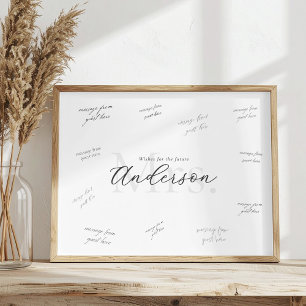 message from
guest here
message from
guest here
message from
guest here
message from
guest here
message from
guest here
Wishes for the future
message from
guest here
Mrs.
Anderson
message from
guest here
message from
guest here
message from
guest here
message from
guest here
message from
guest here